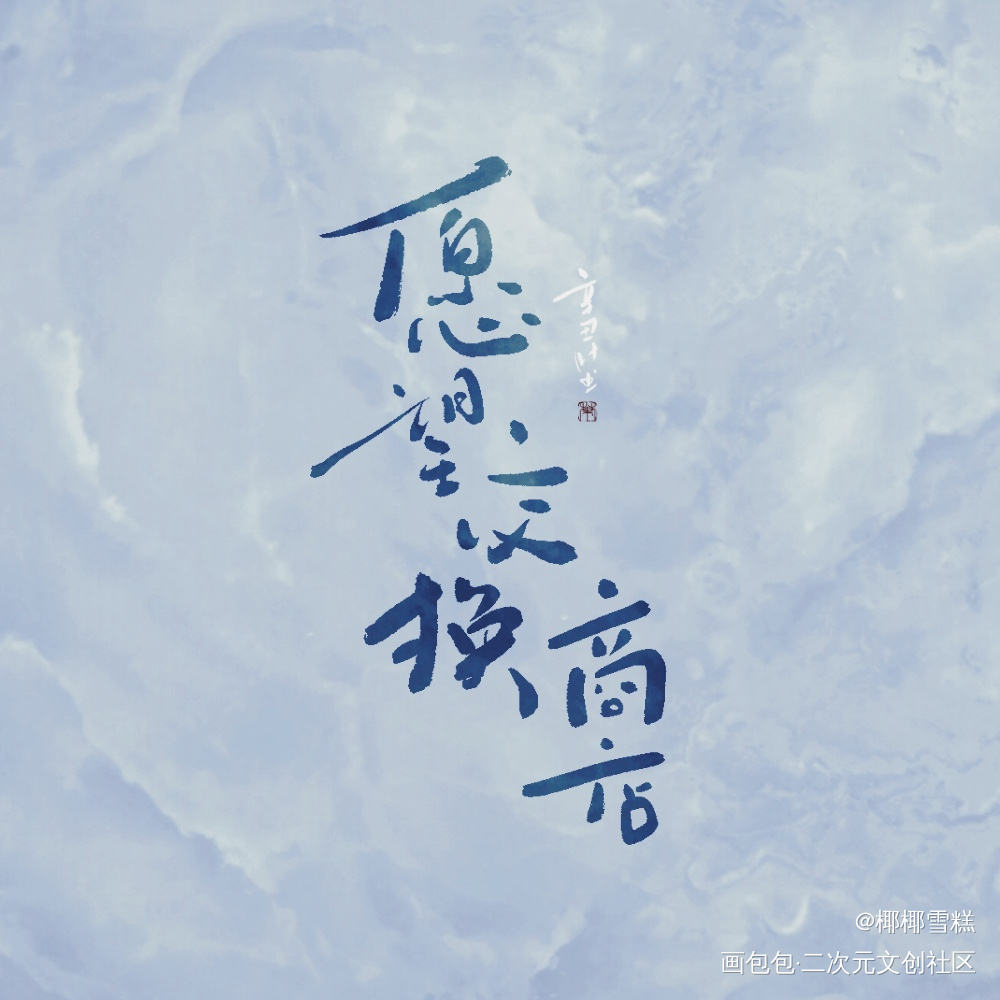 愿望交换商店
辛丑叶书
@椰椰雪糕
画包包·二次元文创社区